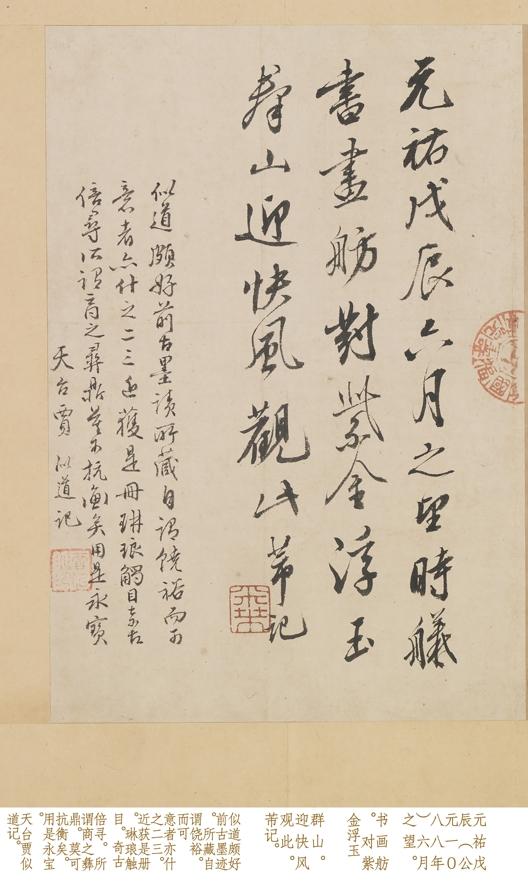 元祐戊辰六月之望時艤
書畫舫對紫金浮玉
群山迎快風觀此芾記
似道頗好前古墨蹟所藏自謂饒裕而可
意者亦什之二三近獲是冊琳琅觸目奇古
倍尋所謂商之彝鼎莫可抗衡矣用是永寶
天台賈似道記
元祐戊
辰（公
元一〇
八八年
）六月
之望。
书画舫
。对紫
金浮玉
群山。
迎快风
观此。
芾记。
似道颇好
前古墨迹
。所藏自
谓饶裕。
而可
意者亦什
之二三。
近获是册
。琳琅触
目。奇古
倍寻。所
谓商之彝
鼎。莫可
抗衡矣。
用是永宝
天台贾似
道记。